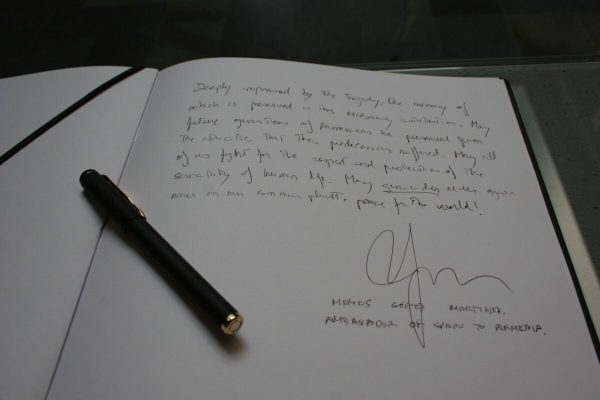 Deeply impressed by the tragedy, the memory of
which is preserved in this necessary institution. May
future generations of Armenians be preserved from
the atrocities that their predecessors suffered. May all
of us fight for the respect and protection of the
sanctity of human life. May genocides never again
occur on our common planet. Peace for the world!
GOMEZ MARTINEZ.
AMBASSADOR OF SPAIN TO ARMENIA.